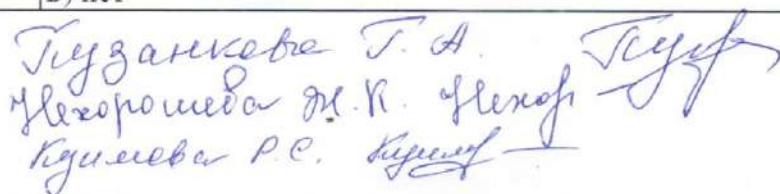 в) нет
Пузанкова Г. А. Пуз
Нехорошева Ж. К. Нехор
Куимова Р. С. Куим